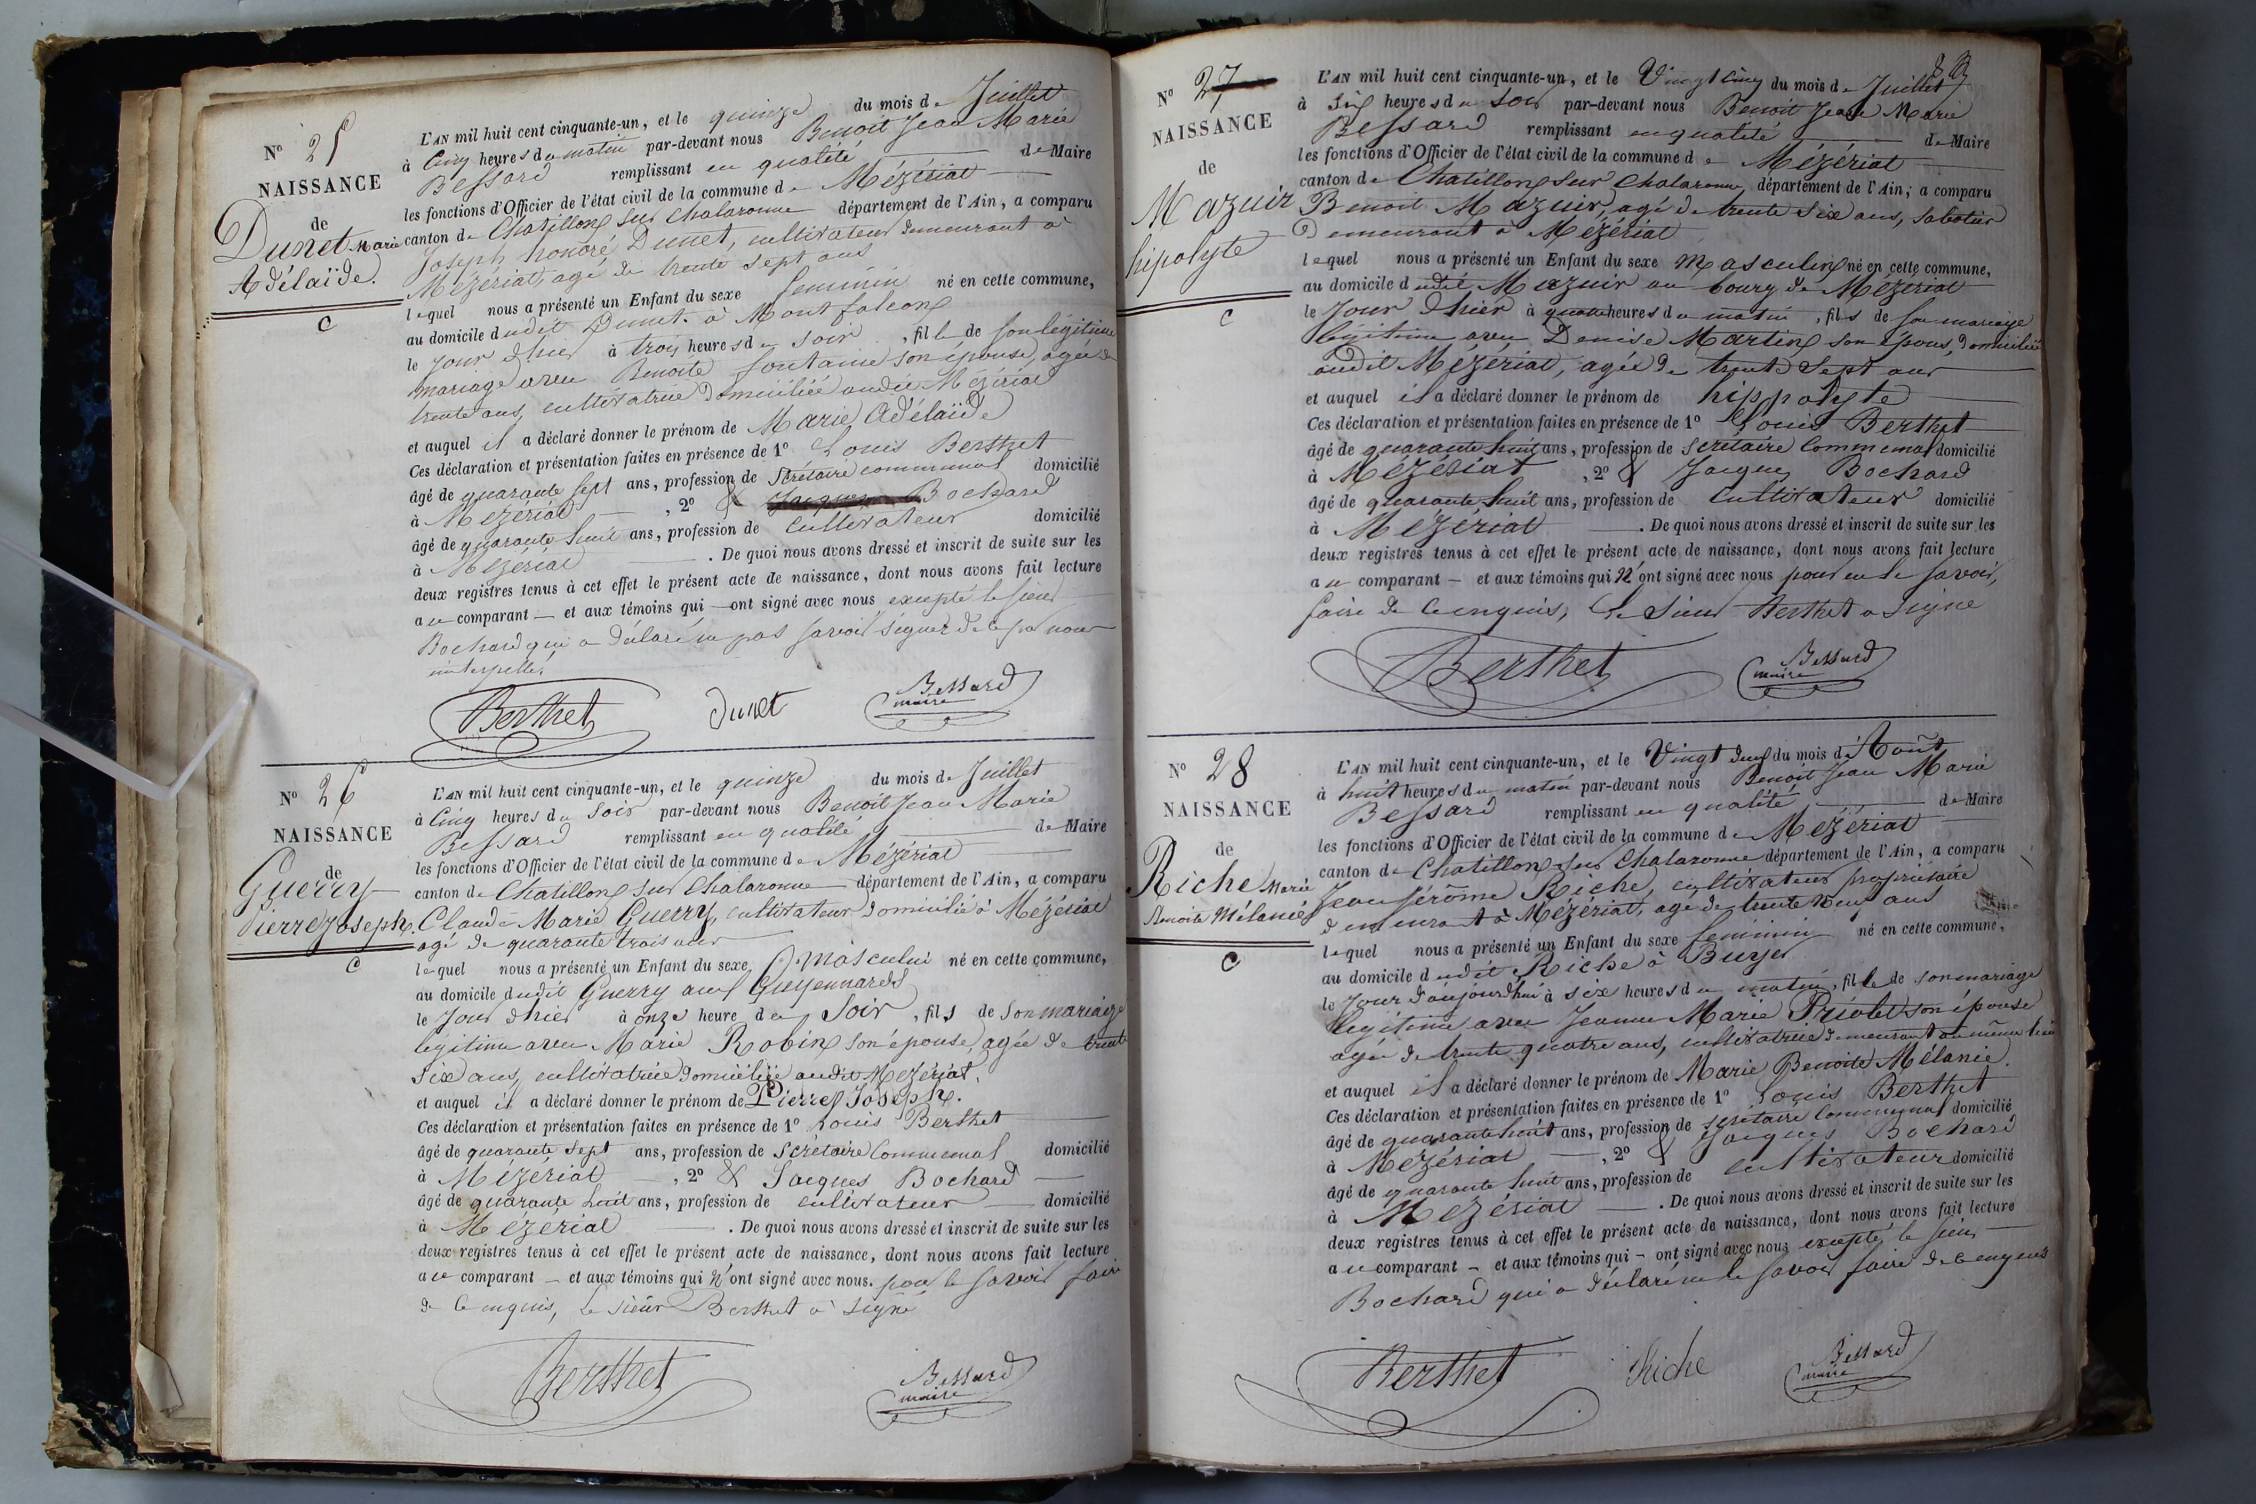 N° 25
NAISSANCE
de
Dunet Marie
Adélaïde.
C
L'AN mil huit cent cinquante-un, et le quinze du mois de Juillet
à Cinq heures du matin par-devant nous Benoit Jean Marie
Bessard remplissant en qualité de Maire
les fonctions d'Officier de l'état civil de la commune de Mézériat
canton de Chatillon sur Chalaronne département de l'Ain, a comparu
Joseph honoré Dunet, cultivateur demeurant à
Mézériat, agé de trente sept ans
lequel nous a présenté un Enfant du sexe feminin né en cette commune,
au domicile dudit Dunet à Montfalcon
le Jour d'hier à trois heures du soir, fille de son légitime
mariage avec Benoite fontaine son épouse, agée de
trente ans, cultivatrice domiciliée audit Mézériat
et auquel il a déclaré donner le prénom de Marie Adélaïde
Ces déclaration et présentation faites en présence de 1° Louis Berthet
âgé de quarante sept ans, profession de Secrétaire communal domicilié
à Mézériat, 2° & Jacques Bochard
âgé de quarante huit ans, profession de cultivateur domicilié
à Mézériat. De quoi nous avons dressé et inscrit de suite sur les
deux registres tenus à cet effet le présent acte de naissance, dont nous avons fait lecture
au comparant — et aux témoins qui — ont signé avec nous excepté le sieur
Bochard qui a déclaré ne pas savoir signer de ce par nous
interpellé.
Berthet Dunet Bessard
maire
N° 26
NAISSANCE
de
Guerry
Pierre Joseph.
C
L'AN mil huit cent cinquante-un, et le quinze du mois de Juillet
à Cinq heures du Soir par-devant nous Benoit Jean Marie
Bessard remplissant en qualité de Maire
les fonctions d'Officier de l'état civil de la commune de Mézériat
canton de Chatillon sur Chalaronne département de l'Ain, a comparu
Claude Marie Guerry, cultivateur domicilié à Mézériat
agé de quarante trois ans
lequel nous a présenté un Enfant du sexe masculin né en cette commune,
au domicile dudit Guerry aux Guyennards
le Jour d'hier à onze heure du Soir, fils de son mariage
legitime avec Marie Robin son épouse, agée de trente
six ans, cultivatrice domiciliée audit Mezériat,
et auquel il a déclaré donner le prénom de Pierre Joseph.
Ces déclaration et présentation faites en présence de 1° Louis Berthet
âgé de quarante sept ans, profession de Secrétaire Communal domicilié
à Mézériat, 2° & Jacques Bochard
âgé de quarante huit ans, profession de cultivateur domicilié
à Mézériat. De quoi nous avons dressé et inscrit de suite sur les
deux registres tenus à cet effet le présent acte de naissance, dont nous avons fait lecture
au comparant — et aux témoins qui N'ont signé avec nous. pour le savoir faire
de ce enquis, Le sieur Berthet a signé
Berthet Bessard
maire
N° 27
NAISSANCE
de
Mazuir
hipolyte
C
L'AN mil huit cent cinquante-un, et le Vingt Cinq du mois de Juillet
à Six heures du soir par-devant nous Benoit Jean Marie
Bessard remplissant en qualité de Maire
les fonctions d'Officier de l'état civil de la commune de Mézériat
canton de Chatillon sur Chalaronne, département de l'Ain; a comparu
Benoit Mazuir, agé de trente six ans, sabotier
Demeurant à Mézériat
lequel nous a présenté un Enfant du sexe Masculin né en cette commune,
au domicile dudit Mazuir au bourg de Mézériat
le Jour d'hier à quatre heures du matin, fils de son mariage
légitime avec Denise Martin son épouse, domiciliée
audit Mézériat, agée de trente Sept ans
et auquel il a déclaré donner le prénom de hippolyte
Ces déclaration et présentation faites en présence de 1° Louis Berthet
âgé de quarante huit ans, profession de secrétaire Communal domicilié
à Mézériat, 2° & Jacques Bochard
âgé de quarante huit ans, profession de Cultivateur domicilié
à Mézériat. De quoi nous avons dressé et inscrit de suite sur les
deux registres tenus à cet effet le présent acte de naissance, dont nous avons fait lecture
au comparant — et aux témoins qui N'ont signé avec nous pour ne le savoir,
faire de Ce enquis, Le Sieur Berthet a signé
Berthet Bessard
maire
N° 28
NAISSANCE
de
Riche Marie
Benoite Mélanie
C
L'AN mil huit cent cinquante-un, et le Vingt deux du mois de Août
à huit heures du matin par-devant nous Benoit Jean Marie
Bessard remplissant en qualité de Maire
les fonctions d'Officier de l'état civil de la commune de Mézériat
canton de Chatillon sur Chalaronne département de l'Ain, a comparu
Jean Jérôme Riche, cultivateur propriétaire
demeurant à Mézériat, agé de trente Neuf ans
lequel nous a présenté un Enfant du sexe feminin né en cette commune,
au domicile dudit Riche à Buyer
le Jour d'aujourd'hui à six heures du matin, fille de son mariage
legitime avec Jeanne Marie Priolet son épouse
agée de trente quatre ans, cultivatrice demeurant au même lieu
et auquel il a déclaré donner le prénom de Marie Benoite Mélanie.
Ces déclaration et présentation faites en présence de 1° Louis Berthet
âgé de quarante huit ans, profession de secrétaire Communal domicilié
à Mézériat, 2° & Jacques Bochard
âgé de quarante huit ans, profession de cultivateur domicilié
à Mézériat. De quoi nous avons dressé et inscrit de suite sur les
deux registres tenus à cet effet le présent acte de naissance, dont nous avons fait lecture
au comparant — et aux témoins qui — ont signé avec nous excepté le sieur
Bochard qui a déclaré ne le savoir faire de ce enquis
Berthet Riche Bessard
maire